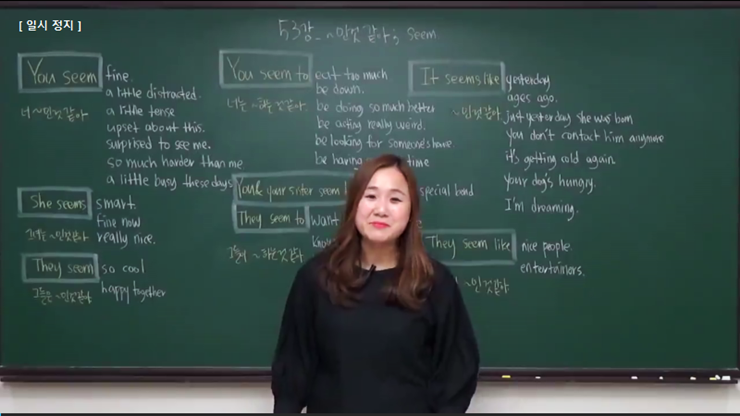 [ 일시 정지 ]
53강_ ~인것 같아; seem
You seem
fine.
a little distracted.
a little tense
upset about this.
surprised to see me.
so much harder than me
a little busy these days
너 ~인것 같아
She seems
smart.
fine now
really nice.
그녀는 ~인것 같아
They seem
so cool
happy together
그들은 ~인것 같아
You seem to
eat too much
be down.
be doing so much better
be acting really weird.
be looking for someone's house
be having
time
너는 ~하는 것 같아
You & your sister seem
special bond
They seem to
want
그들이 ~하는 것 같다
It seems like
yesterday
ages ago.
just yesterday she was born
you don't contact him anymore
it's getting cold again
your dog's hungry.
I'm dreaming.
~인것 같아
They seem like
nice people
entertainers.
~인것 같아